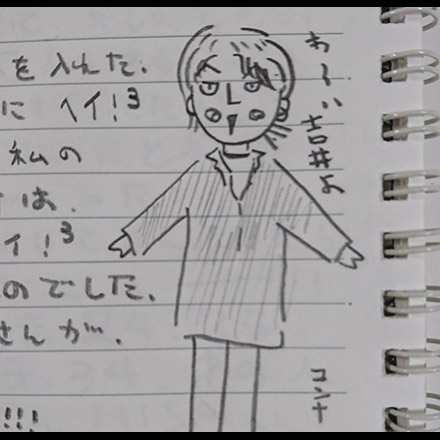 を入れた.
に ヘイ!³
私の
は.
イ!³
のでした.
さんが.
!!!
わーい吉井よ
コンナ